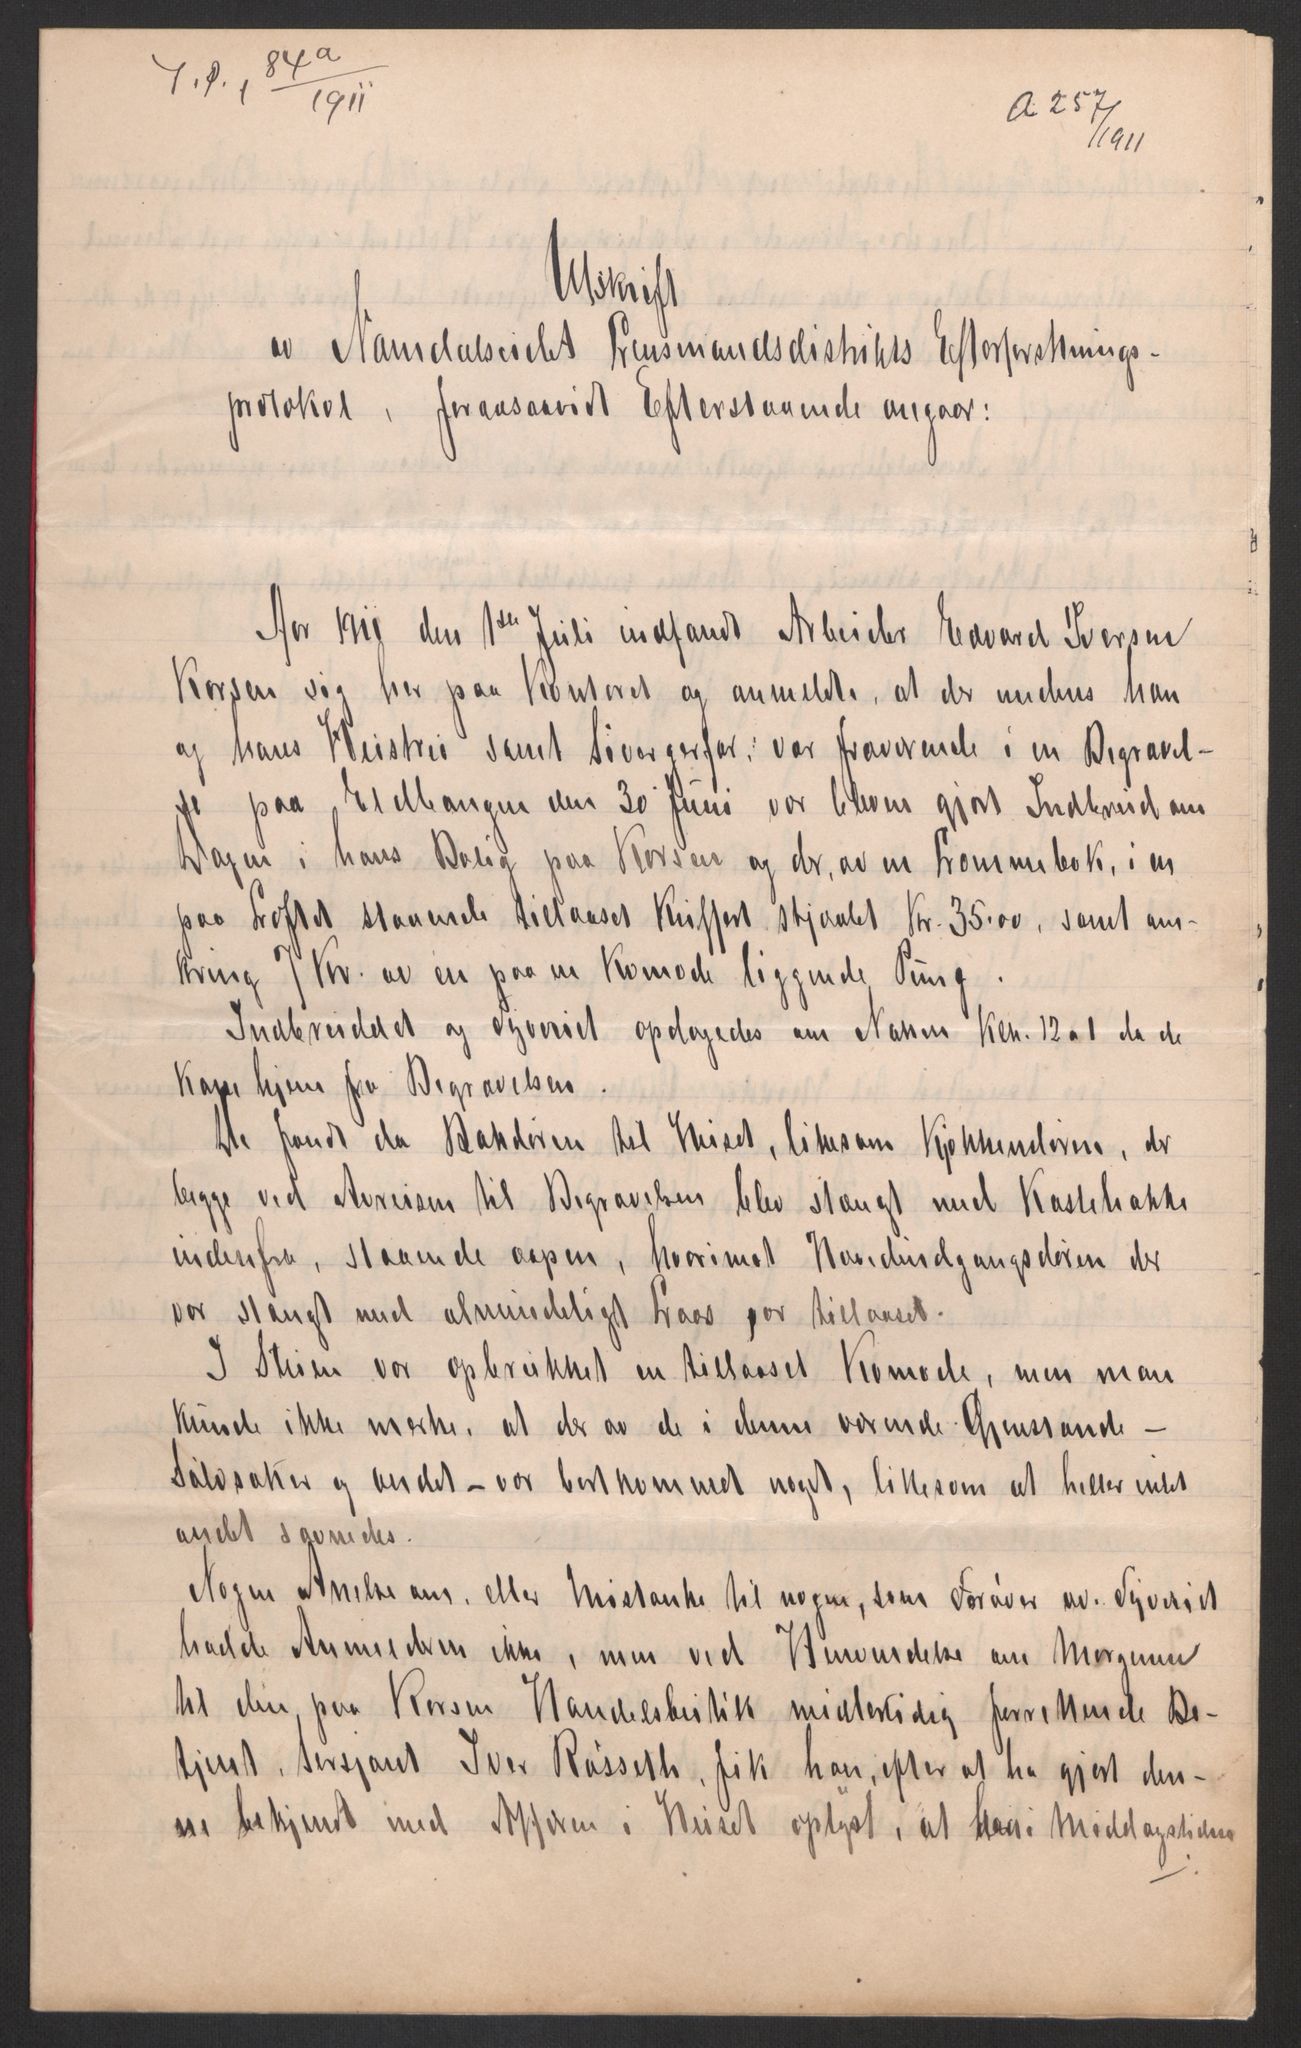 J.P., 84a/1911
A 257/1911
Utskrift
av Namdalseidet Lensmandsdistrikts Efterforsknings-
protokol, foransaavidt Efterstaaende angaar:
Aar 1911 den 1ste Juli indfandt Arbeider Edvard Iversen
Korsen sig her paa Kontoret og anmeldte, at der medens han
og hans Hustru samt Sivergerfar: var fraværende i en Begravel-
se paa Eldbangen den 30 Juni var bleven gjort Indbrud om
Dagen i hans Bolig paa Korsen og der, av en Lommebok, i en
paa Loftet staaende tillaaset Kuffert stjaalet Kr. 35.00, samt om-
kring 7 Kr. av en paa en Komode liggende Pung.
Indbruddet og Tyveriet opdagedes om Natten Kl. 12 a 1 da de
kom hjem fra Begravelsen.
De fandt da Bakdøren til Huset, likesom Kjøkkendøren, der
begge ved Avreisen til Begravelsen blev stængt med Kastehakke
indenfra, staaende aapen, hvorimot Hovedindgangsdøren der
var stængt med almindeligt Laas var tillaaset.
I Stuen var opbrukket en tillaaset Komode, men man
kunde ikke merke, at der av de i denne værende Gjenstande -
Sølvsaker og andet - var bortkommet noget, likesom at heller intet
andet savnedes.
Nogen Anelse om, eller Mistanke til nogen, som Forøver av Tyveriet
hadde Anmelderen ikke, men ved Henvendelse om Morgenen
til den, paa Korsen Handelsbutik midlertidig forrettende Be-
tjent, Sersjant Iver Røsseth, fik han, efter at ha gjort den-
ne bekjendt med Affæren i Huset oplyst, at han i Middagstiden